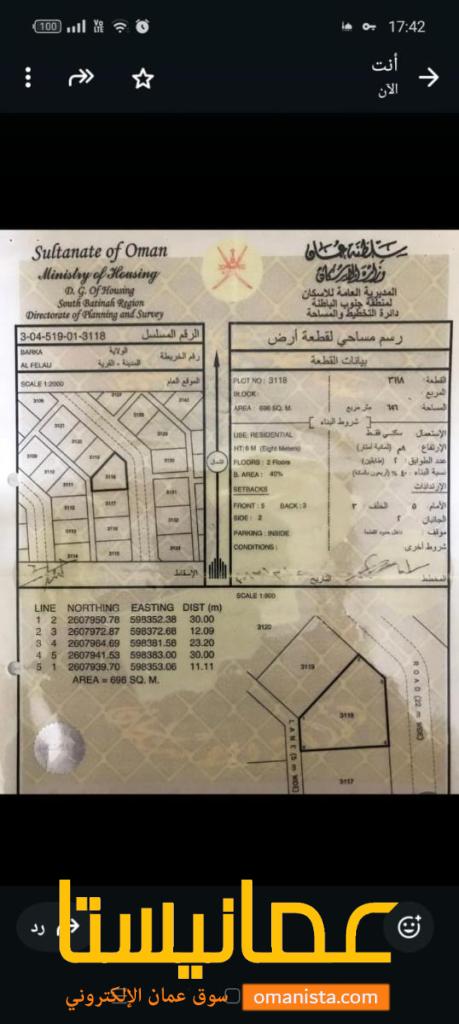 100
Vo LTE
17:42
أنت
الآن
Sultanate of Oman
Ministry of Housing
D. G. Of Housing
South Batinah Region
Directorate of Planning and Survey
سلطنة عمان
وزارة الإسكان
المديرية العامة للاسكان
لمنطقة جنوب الباطنة
دائرة التخطيط والمساحة
3-04-519-01-3118 الرقم المسلسل
BARKA الولاية
AL FELAIJ المدينة - القرية
رقم الخريطة
SCALE 1:2000 الموقع العام
3120
3119
3118
3117
3116
3115
3114
الشمال
الإسقاط
رسم مساحي لقطعة أرض
بيانات القطعة
PLOT NO : 3118 القطعة : ٣١١٨
BLOCK: المربع :
AREA : 696 SQ. M. المساحة : ٦٩٦ متر مربع
شروط البناء
USE: RESIDENTIAL الاستعمال : سكني فقط
HT: 8 M (Eight Meters) الارتفاع : ٨م (ثمانية أمتار)
FLOORS : 2 Floors عدد الطوابق : ٢ (طابقين)
B. AREA : 40% نسبة البناء : ٤٠ % (أربعون بالمائة)
SETBACKS الارتدادات
FRONT : 5 BACK : 3 الأمام : ٥ الخلف : ٣
SIDE : 2 الجانبان : ٢
PARKING : INSIDE موقف : داخل حدود القطعة
CONDITIONS : شروط أخرى :
المخطط
التاريخ
SCALE 1:800
LINE NORTHING EASTING DIST (m)
1 2 2607950.78 598352.38 30.00
2 3 2607972.87 598372.68 12.09
3 4 2607964.69 598381.58 23.20
4 5 2607941.53 598383.00 30.00
5 1 2607939.70 598353.06 11.11
AREA = 696 SQ. M.
3120
3119
3118
3117
LANE (5 m WIDE)
ROAD (22 m WIDE)
رد
عمانيستا
سوق عمان الإلكتروني
omanista.com